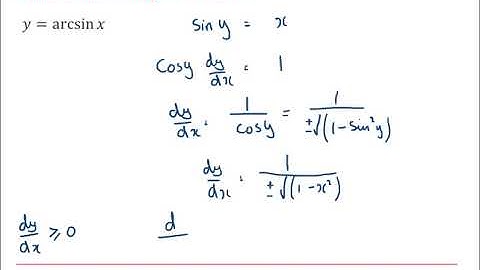 y = arcsin x
sin y = x
cos y dy/dx = 1
dy/dx = 1/cos y = 1/±√(1-sin²y)
dy/dx = 1/±√(1-x²)
dy/dx ≥ 0 d